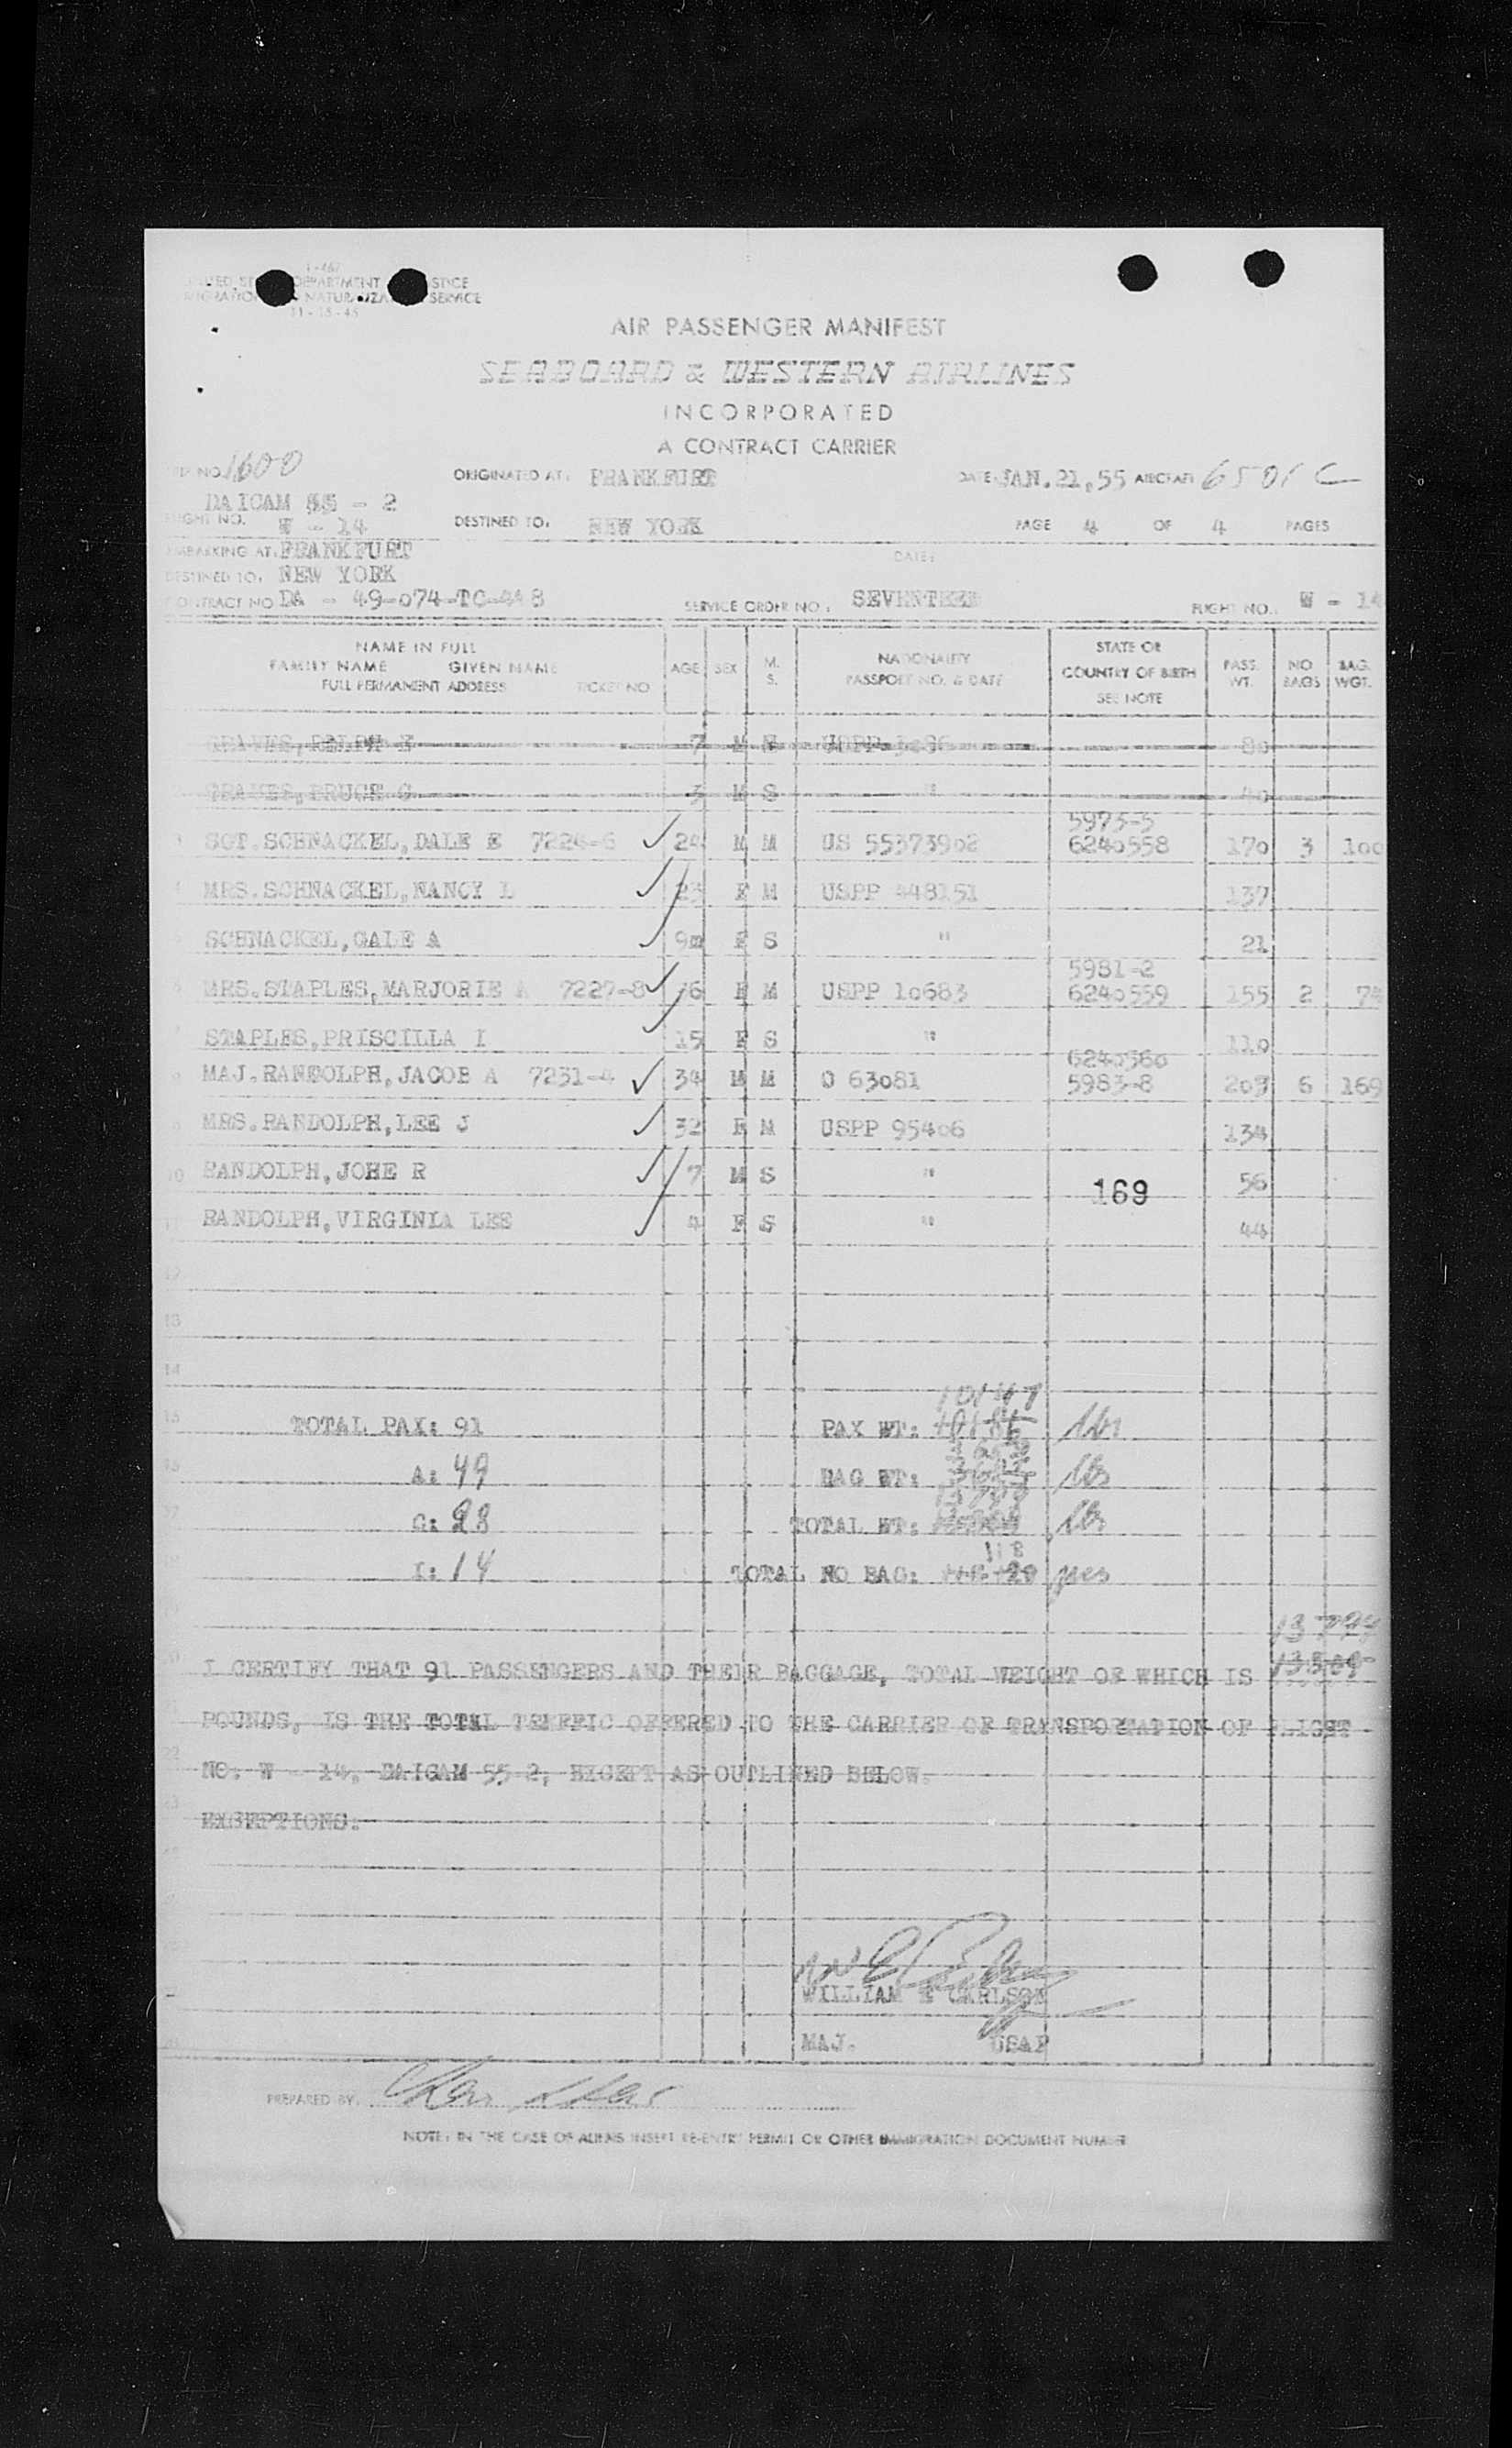 I-467
DEPARTMENT
NATUR SERVICE
AIR PASSENGER MANIFEST
SEABOARD & WESTERN AIRLINES
INCORPORATED
A CONTRACT CARRIER
NO. 1600 ORIGINATED AT: FRANKFURT DATE: JAN. 21, 55 AIRCRAFT 6501C
DAICAM 55 - 2
FLIGHT NO. W - 14 DESTINED TO: NEW YORK PAGE 4 OF 4 PAGES
EMBARKING AT: FRANKFURT DATE:
DESTINED TO: NEW YORK
CONTRACT NO DA - 49-074-TC-448 SERVICE ORDER NO.: SEVENTEEN FLIGHT NO.: W - 14
NAME IN FULL
FAMILY NAME GIVEN NAME
FULL PERMANENT ADDRESS TICKET NO
AGE SEX M. S. NATIONALITY PASSPORT NO. & DATE STATE OR COUNTRY OF BIRTH SEE NOTE PASS. WT. NO BAGS BAG. WGT.
GRAVES, RALPH 7 M S USPP 80
GRAVES, BRUCE G 3 M S " 40
5973-5
3 SGT. SCHNACKEL, DALE E 7224-6 24 M M US 55373902 6240558 170 3 100
4 MRS. SCHNACKEL, NANCY L 23 F M USPP 448151 137
5 SCHNACKEL, GALE A 9m F S " 21
5981-2
6 MRS. STAPLES, MARJORIE A 7227-8 36 F M USPP 10683 6240559 155 2 74
7 STAPLES, PRISCILLA I 15 F S " 110
6240560
8 MAJ. RANDOLPH, JACOB A 7231-4 34 M M O 63081 5983-8 209 6 169
9 MRS. RANDOLPH, LEE J 32 F M USPP 95406 134
10 RANDOLPH, JOHE R 7 M S " 56
169
11 RANDOLPH, VIRGINIA LEE 4 F S " 44
12
13
14
10147
15 TOTAL PAX: 91 PAX WT: lbs
16 A: 49 BAG WT: lbs
17 C: 28 TOTAL WT: lbs
118
18 I: 14 TOTAL NO BAG: pcs
13774
I CERTIFY THAT 91 PASSENGERS AND THEIR BAGGAGE, TOTAL WEIGHT OF WHICH IS 13509
POUNDS, IS THE TOTAL TRAFFIC OFFERED TO THE CARRIER OF TRANSPORTATION OF FLIGHT
NO. W - 14, DAICAM 55-2, EXCEPT AS OUTLINED BELOW.
EXCEPTIONS:
WILLIAM E CARLSON
MAJ. USAF
PREPARED BY:
NOTE: IN THE CASE OF ALIENS INSERT RE-ENTRY PERMIT OR OTHER IMMIGRATION DOCUMENT NUMBER